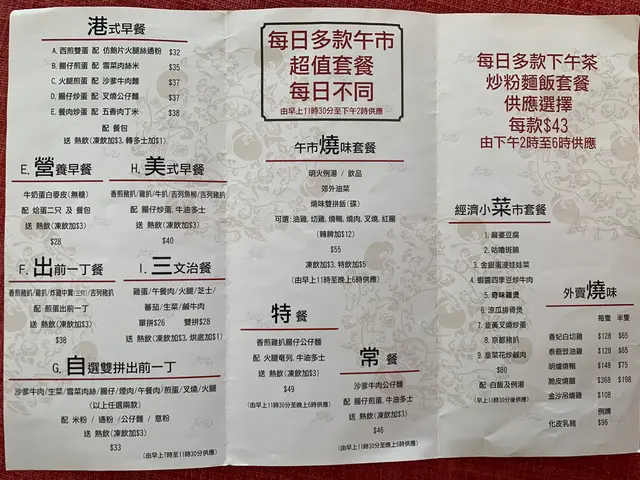 港式早餐
A. 西煎雙蛋 配 仿鮑片火腿絲通粉 $32
B. 腸仔煎蛋 配 雪菜肉絲米 $35
C. 火腿煎蛋 配 沙爹牛肉麵 $37
D. 腸仔炒蛋 配 叉燒公仔麵 $37
E. 餐肉炒蛋 配 五香肉丁米 $38
配 餐包
送 熱飲(凍飲加$3, 轉多士加$1)
E. 營養早餐
牛奶蛋白麥皮(無糖)
配 烚蛋二只 及 餐包
送 熱飲(凍飲加$3)
$28
H. 美式早餐
香煎豬扒/雞扒/牛扒/吉列魚柳/吉列豬扒
配 腸仔炒蛋, 牛油多士
送 熱飲(凍飲加$3)
$40
F. 出前一丁餐
香煎豬扒/雞扒/炸雞中翼(三只)/吉列豬扒
配 煎蛋出前一丁
送 熱飲(凍飲加$3)
$38
I. 三文治餐
雞蛋/午餐肉/火腿/芝士/
蕃茄/生菜/鹹牛肉
單拼$26 雙拼$28
送 熱飲(凍飲加$3, 烘底加$1)
G. 自選雙拼出前一丁
沙爹牛肉/生菜/雪菜肉絲/腸仔/煙肉/午餐肉/煎蛋/叉燒/火腿
(以上任選兩款)
配 米粉 / 通粉 /公仔麵 / 意粉
送 熱飲(凍飲加$3)
$33
(由早上7時至11時30分供應)
每日多款午市
超值套餐
每日不同
由早上11時30分至下午2時供應
午市燒味套餐
明火例湯 / 飲品
郊外油菜
燒味雙拼飯(碟)
可選: 油雞, 切雞, 燒鴨, 燒肉, 叉燒, 紅腸
(轉髀加$12)
$55
凍飲加$3, 特飲加$5
(由早上11時30分至晚上6時供應)
特餐
香煎雞扒腸仔公仔麵
配 火腿奄列, 牛油多士
送 熱飲(凍飲加$3)
$49
(由早上11時30分至晚上6時供應)
常餐
沙爹牛肉公仔麵
配 腸仔煎蛋, 牛油多士
送 熱飲(凍飲加$3)
$46
(由早上11時30分至晚上6時供應)
每日多款下午茶
炒粉麵飯套餐
供應選擇
每款$43
由下午2時至6時供應
經濟小菜市套餐
1. 麻婆豆腐
2. 咕嚕斑腩
3. 金銀蛋浸娃娃菜
4. 蝦醬四季豆炒牛肉
5. 奇味雞煲
6. 涼瓜排骨煲
7. 韮黃叉燒炒蛋
8. 京都豬扒
9. 韮菜花炒鹹肉
$80
配 · 白飯及例湯
(早上11時30分後供應)
外賣燒味
每隻 半隻
香妃白切雞 $128 $65
意爺豉油雞 $128 $65
明爐燒鴨 $148 $75
脆皮燒鵝 $368 $198
金沙吊燒雞 $108
例牌
化皮乳豬 $96